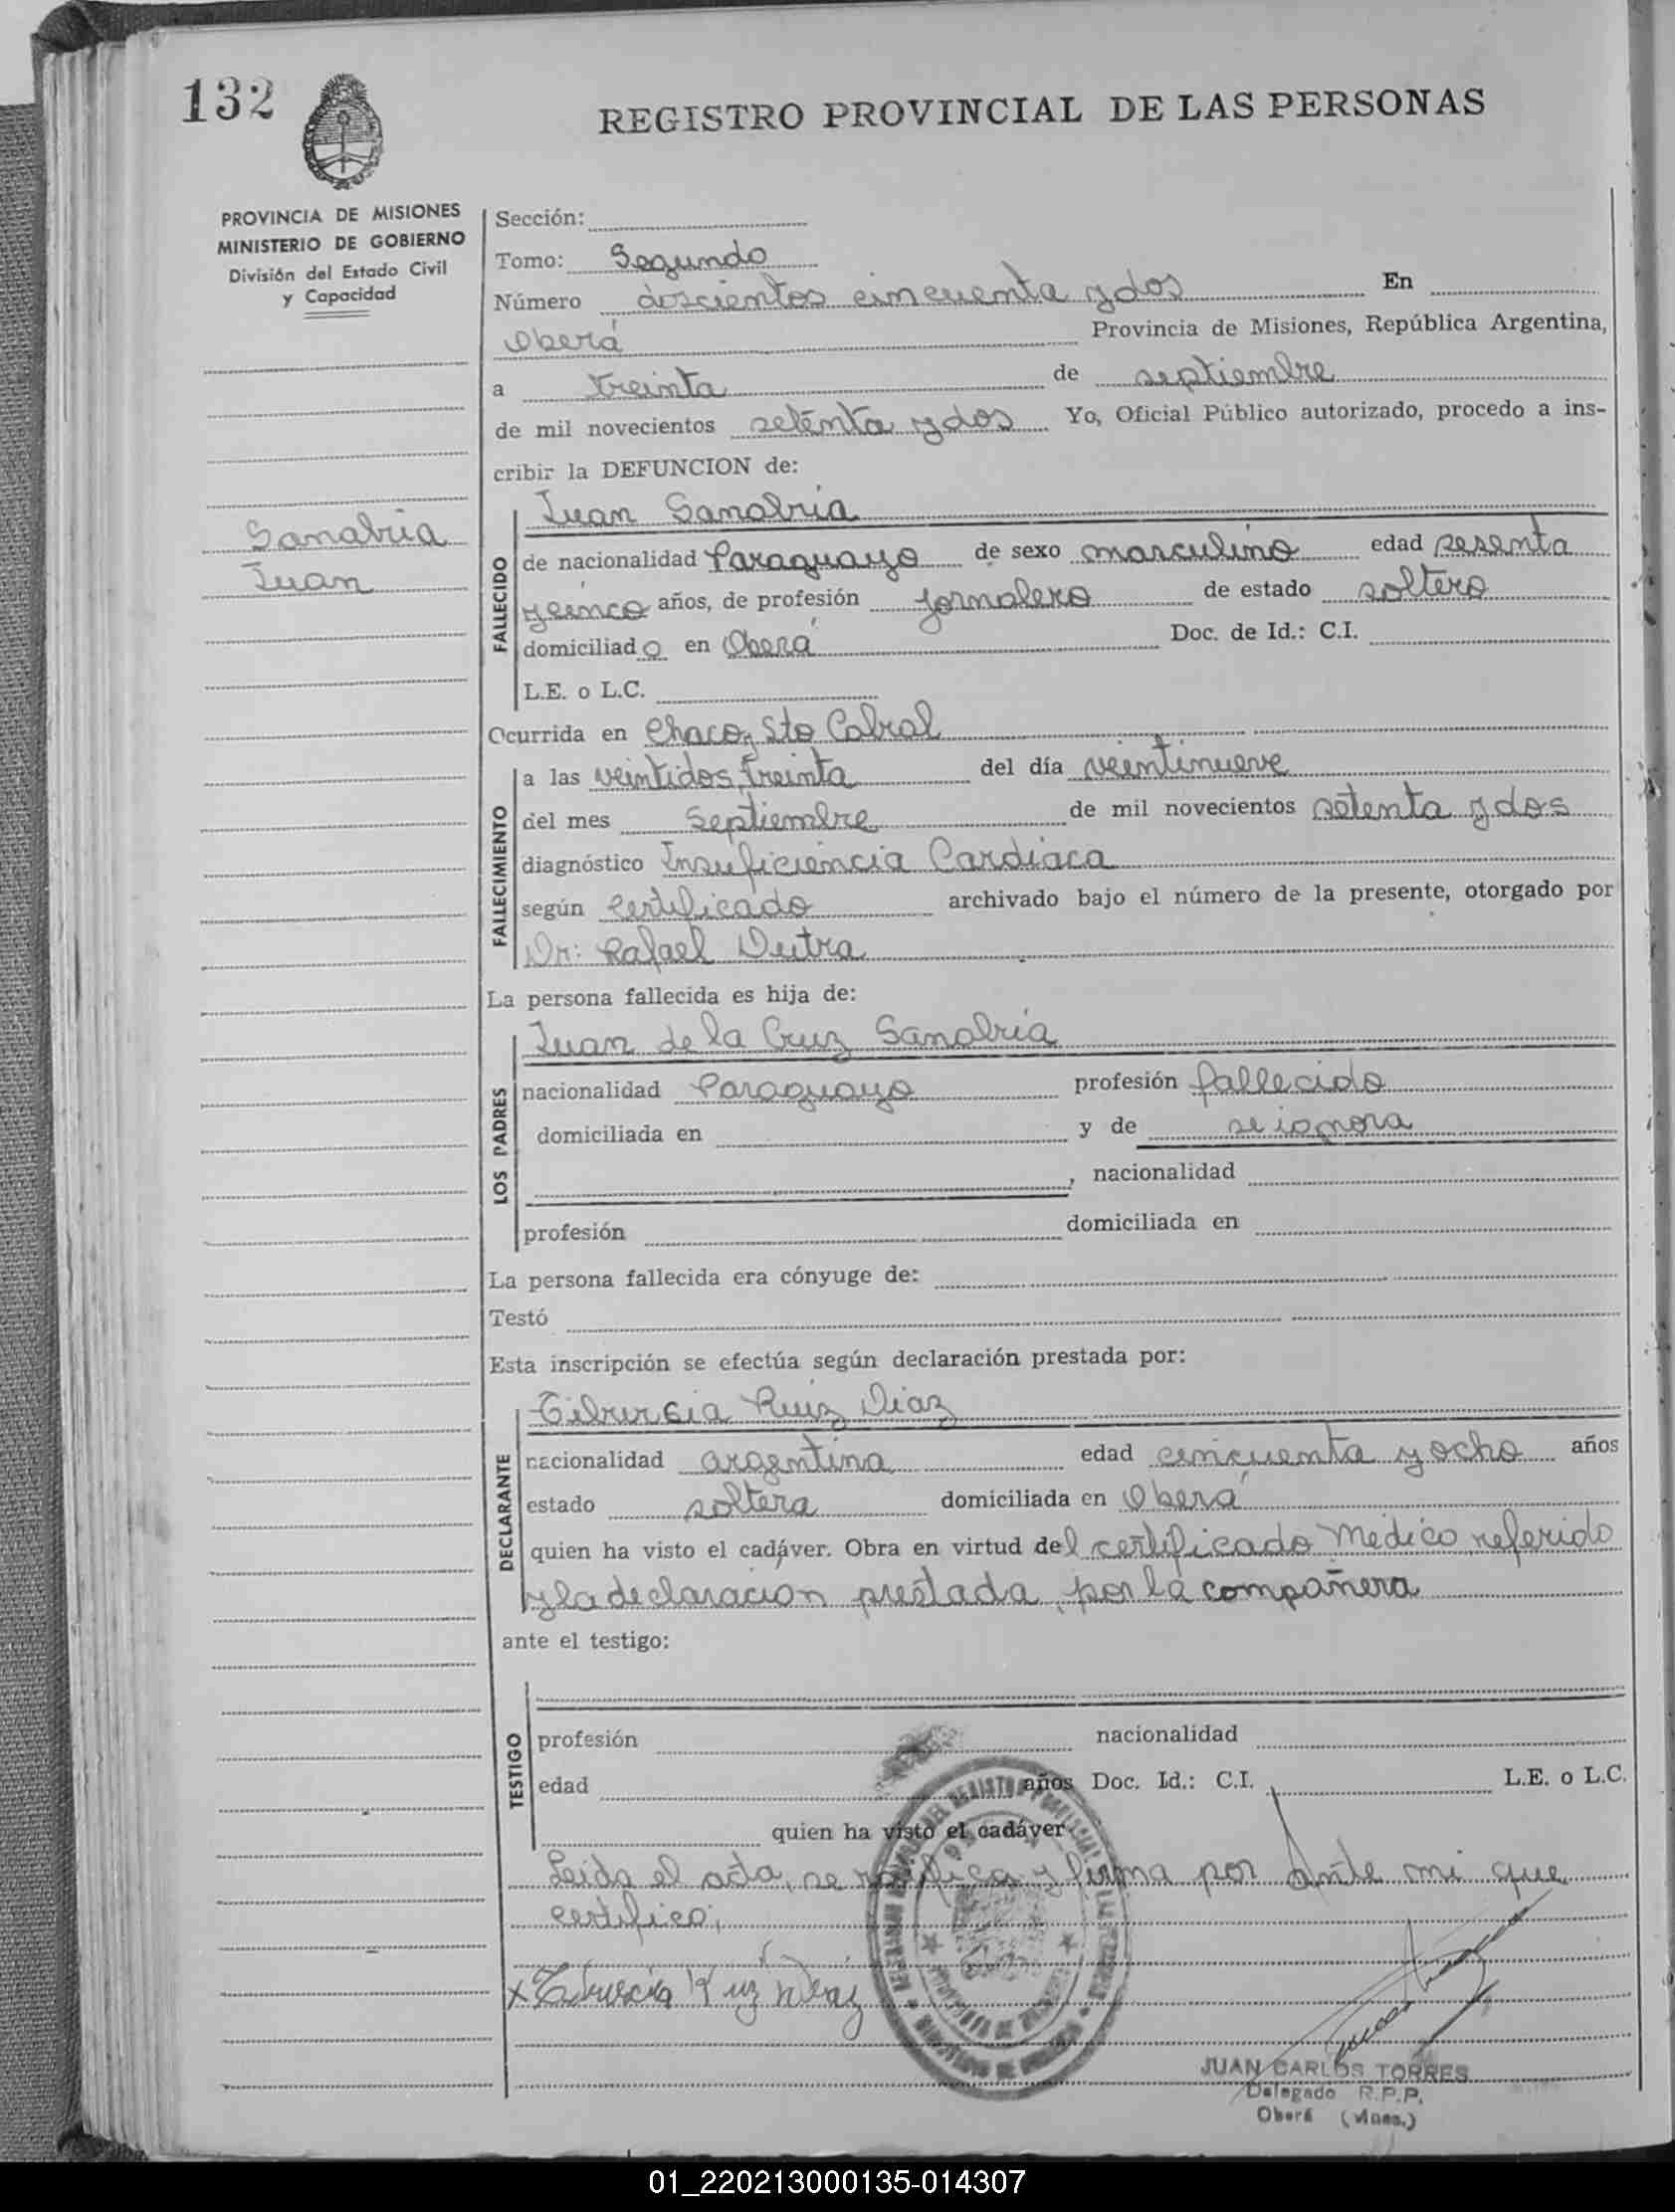 132
REGISTRO PROVINCIAL DE LAS PERSONAS
PROVINCIA DE MISIONES
MINISTERIO DE GOBIERNO
División del Estado Civil
y Capacidad
Sanabria
Juan
Sección:
Tomo: Segundo
Número doscientos cincuenta y dos En
Oberá Provincia de Misiones, República Argentina,
a treinta de septiembre
de mil novecientos setenta y dos Yo, Oficial Público autorizado, procedo a ins-
cribir la DEFUNCION de:
FALLECIDO
Juan Sanabria
de nacionalidad Paraguayo de sexo masculino edad sesenta
y cinco años, de profesión jornalero de estado soltero
domiciliado en Oberá Doc. de Id.: C.I.
L.E. o L.C.
Ocurrida en Chaco y Sto Cabral
FALLECIMIENTO
a las veintidos, treinta del día veintinueve
del mes septiembre de mil novecientos setenta y dos
diagnóstico Insuficiencia Cardiaca
según certificado archivado bajo el número de la presente, otorgado por
Dr: Rafael Dutra
La persona fallecida es hija de:
LOS PADRES
Juan de la Cruz Sanabria
nacionalidad Paraguayo profesión fallecido
domiciliada en y de se ignora
, nacionalidad
profesión domiciliada en
La persona fallecida era cónyuge de:
Testó
Esta inscripción se efectúa según declaración prestada por:
DECLARANTE
Tibursia Ruiz Diaz
nacionalidad argentina edad cincuenta y ocho años
estado soltera domiciliada en Oberá
quien ha visto el cadáver. Obra en virtud del certificado Médico referido
y la declaración prestada, por la compañera
ante el testigo:
TESTIGO
profesión nacionalidad
edad años Doc. Id.: C.I. L.E. o L.C.
quien ha visto el cadáver
Leida el acta, se ratifica y firma por Ante mi que
certifico;
x Tibursia Ruiz Diaz
JUAN CARLOS TORRES
Delegado R.P.P.
Oberá (Mnes.)
01_220213000135-014307